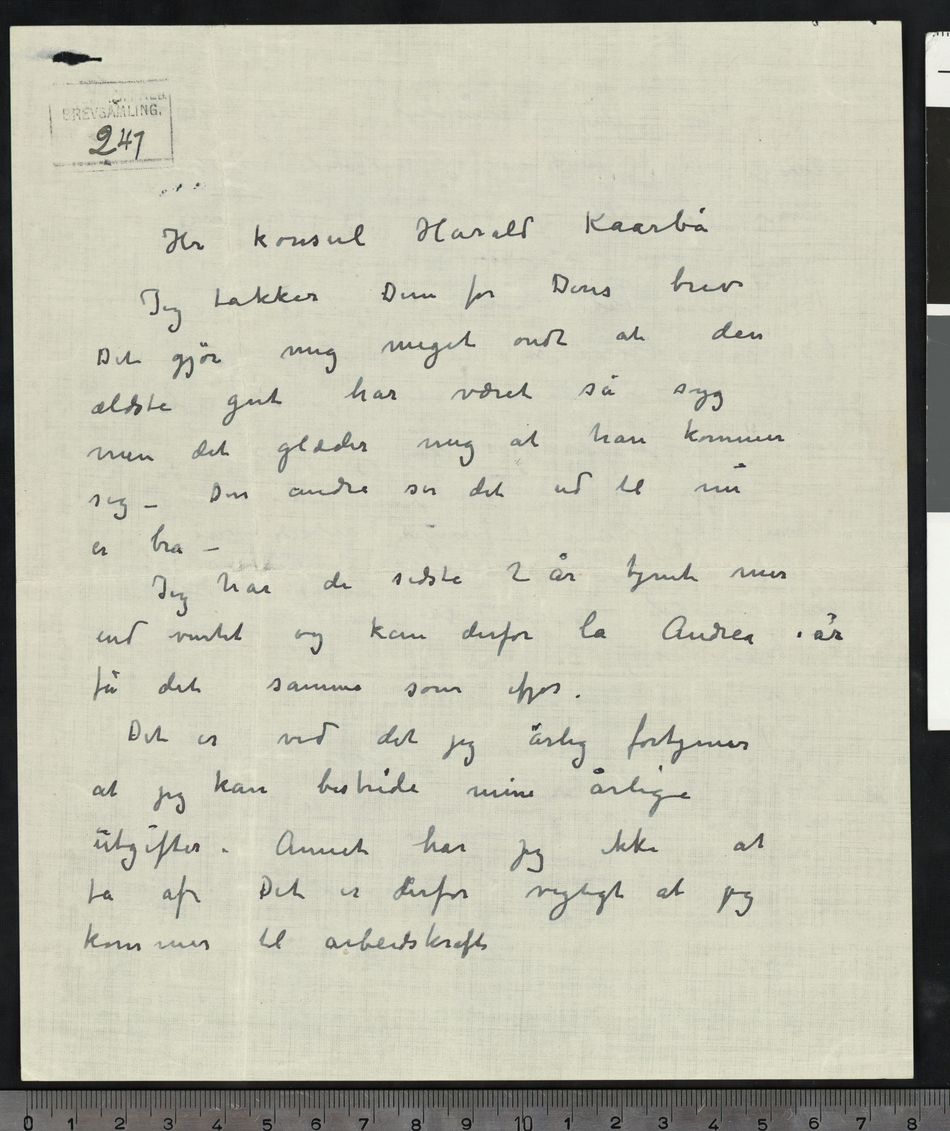 BREVSAMLING.
247
Hr konsul Harald Kaarbö
Jeg takker Dem for Deres brev
Det gjör mig meget ondt at den
ældste gut har været så syg
men det glæder mig at han kommer
sig – Den andre ser det ud til nu
er bra –
Jeg har de sidste 2 år tjent mer
end ventet og kan derfor la Andrea i år
få det samme som ifjor.
Det er ved det jeg årlig fortjener
at jeg kan bestride mine årlige
utgifter. Annet har jeg ikke at
ta af. Det er derfor vigtigt at jeg
kommer til arbeidskrafts